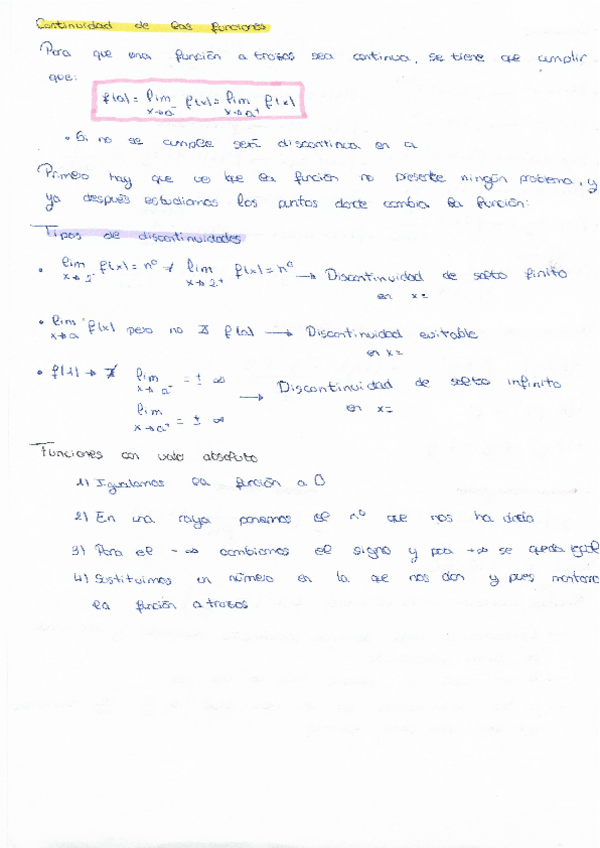 Continuidad de las funciones
Para que una función a trozos sea continua, se tiene que cumplir
que:
f(a) = lim x→a⁻ f(x) = lim x→a⁺ f(x)
• Si no se cumple será discontinua en a
Primero hay que ver que la función no presente ningún problema, y
ya después estudiamos los puntos donde cambia la función:
Tipos de discontinuidades
• lim x→2⁻ f(x) = nº ≠ lim x→2⁺ f(x) = nº → Discontinuidad de salto finito
en x=
• lim x→a f(x) pero no ∄ f(a) → Discontinuidad evitable
en x=
• f(1) → ∄ lim x→a⁻ = ± ∞
lim x→a⁺ = ± ∞ → Discontinuidad de salto infinito
en x=
Funciones con valor absoluto
1) Igualamos la función a 0
2) En una raya ponemos el nº que nos ha dado
3) Para el -∞ cambiamos el signo y para +∞ se queda igual
4) Sustituimos un número en la que nos dan y pues
la función a trozos